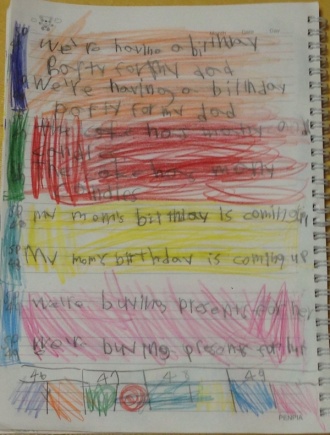 We're having a birthday
Party for my dad
We're having a birthday
party for my dad
has mostly
cake has mostly
candles
my mom's birthday is coming up
My mom's birthday is coming up
We're buying presents for her
We're buying presents for her
46 47 48 49